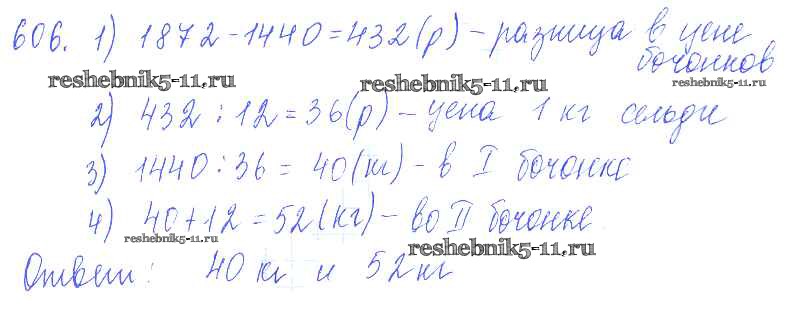 606. 1) 1872-1440=432(р) - разница в цене
бочонков
reshebnik5-11.ru reshebnik5-11.ru reshebnik5-11.ru
2) 432:12=36(р) - цена 1 кг сельди
3) 1440:36=40(кг) - в I бочонке
4) 40+12=52(кг) - во II бочонке
reshebnik5-11.ru reshebnik5-11.ru
Ответ: 40 кг и 52 кг